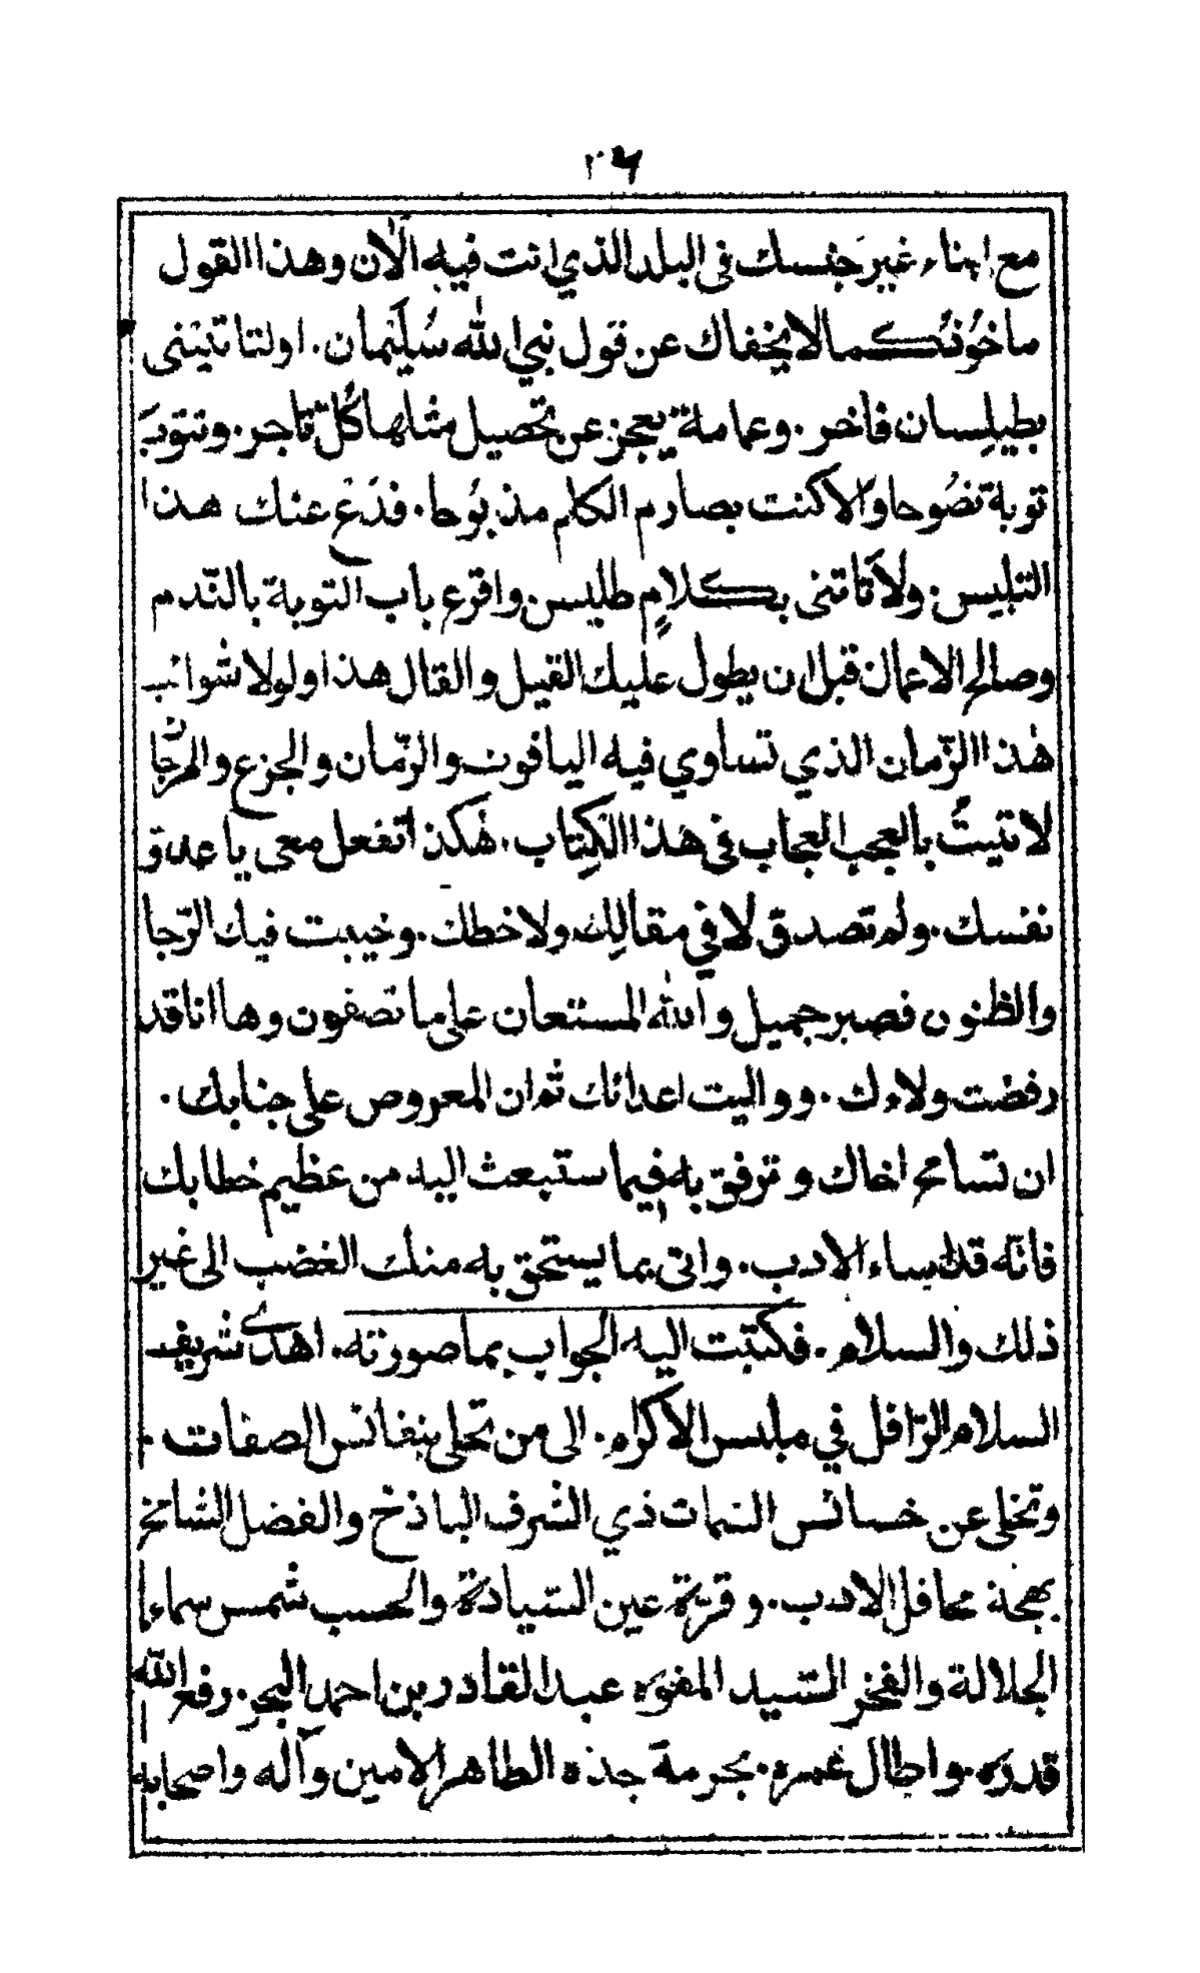 مع ابناء غير جنسك فى البلد الذي انت فيه الآن وهذا القول
ماخوذ كما لا يخفاك عن قول نبي الله سُلَيْمان. اولتاتينى
بطيلسان فاخر. وعمامة يعجز عن تحصيل مثلها كُلّ تاجر. وتتوبَ
توبة نصُوحا والّا كنت بصارم الكلم مذبُوحا. فدَعْ عنك هذا
التلبيس. ولا تَاتنى بكلامٍ طلبيس. واقرع باب التوبة بالنّدم
وصالح الاعمال قبل ان يطول عليك القيل والقال هذا ولولا شوائب
هٰذا الزّمان الذي تساوي فيه الياقوت والرّمان والجزع والمرجان
لاتيتُ بالعجب العجاب فى هٰذا الكِتاب. هٰكذا تفعل معى يا عدوّ
نفسك. ولم تصدق لا في مقالِك ولا خطك. وخيبت فيك الرّجا
والظنون فصبر جميل والله المستعان على ما تصفون وها انا قد
رفضت ولاءك. وواليت اعدائك ثم ان المعروض على جنابك.
ان تسامح اخاك وترفق به فيما ستبعث اليه من عظيم خطابك
فانّه قد اساء الادب. واتى بما يستحق به منك الغضب الى غير
ذلك والسلام. فكتبت اليه الجواب بما صورته. اهدى شريف
السلام الرّافل في ملبس الاكرام. الى من تحلى بنفائس الصفات.
وتخلى عن خسائس السمات ذي الشرف الباذخ والفضل الشامخ
بهجة محافل الادب. وقرّة عين السّيادة والحسب شمس سماء
الجلالة والفخر السّيد المفوّه عبد القادر بن احمد البحر. رفع الله
قدره. واطال عمره. بحرمة جدّه الطاهر الامين وآله واصحابه